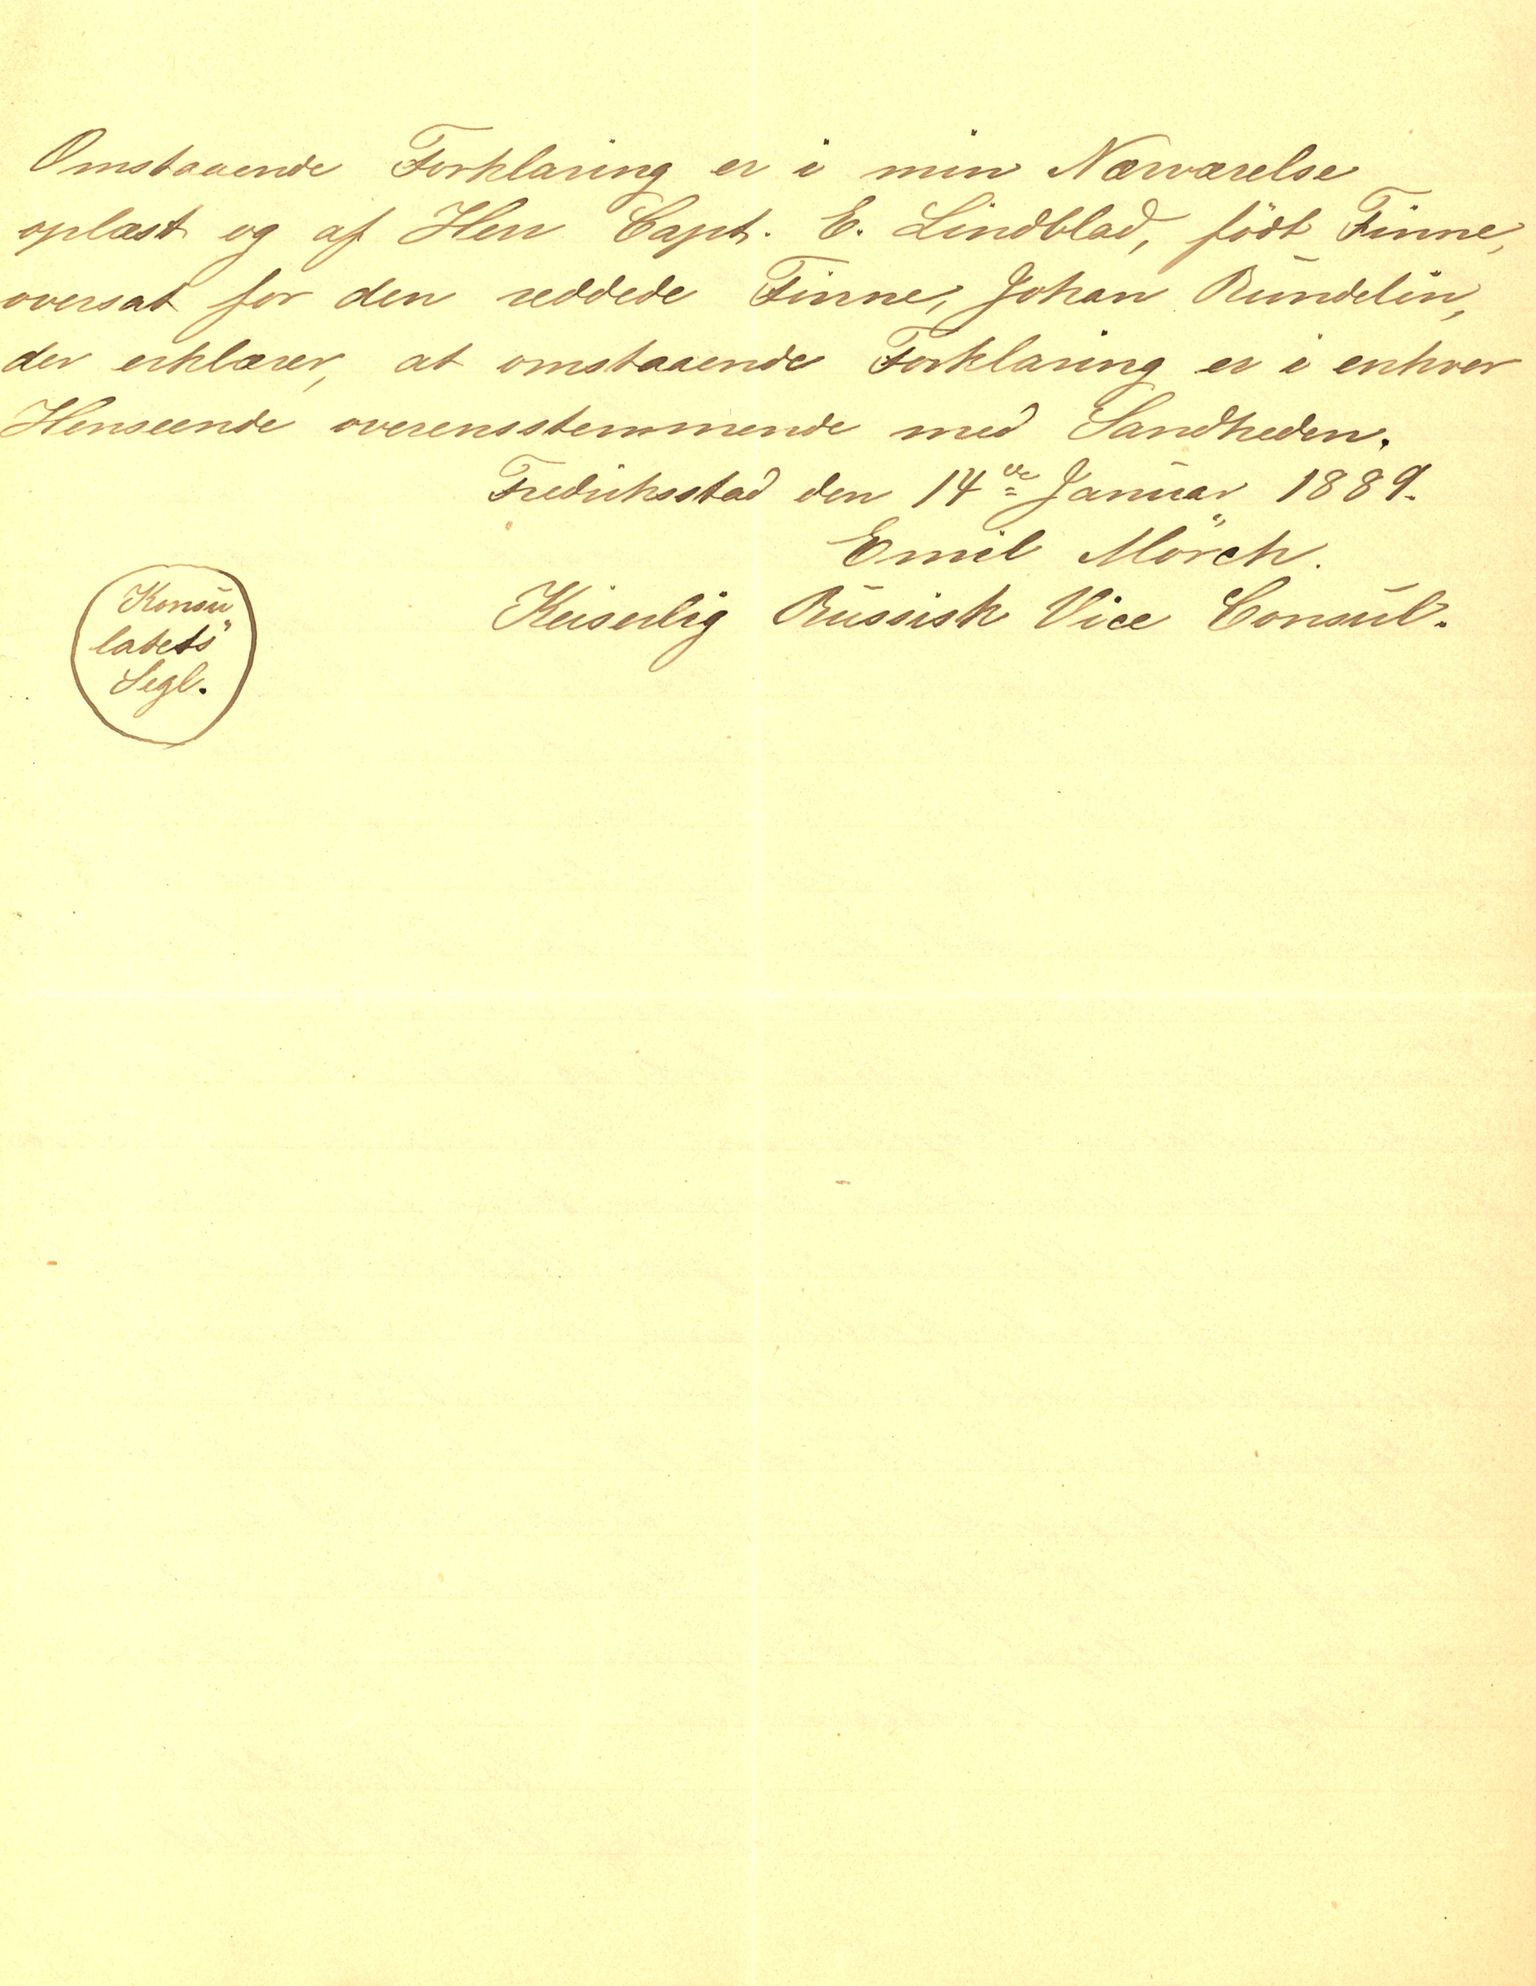 Omstaaende Forklaring er i min Nærværelse
oplæst og af Herr Capt. E. Lindblad, födt Finne,
oversat for den reddede Finne, Johan Rundelin,
der erklærer, at omstaaende Forklaring er i enhver
Henseende overensstemmende med Sandheden.
Fredriksstad den 14de Januar 1889.
Emil Mörch.
Keiserlig Russisk Vice Consul.
Konsu
latets"
Segl.